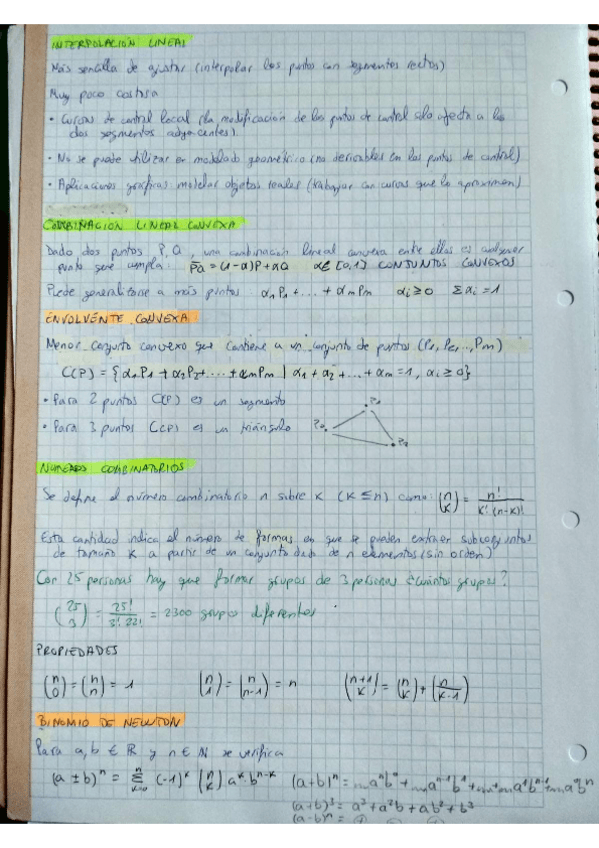 INTERPOLACIÓN LINEAL
Más sencilla de ajustar (interpolar los puntos con segmentos rectos)
Muy poco costosa
• Curvas de control local (la modificación de los puntos de control solo afecta a los
dos segmentos adyacentes).
• No se puede utilizar en modelado geométrico (no derivables en los puntos de control)
• Aplicaciones gráficas modelar objetos reales (trabajar con curvas que lo aproximen)
COMBINACION LINEAL CONVEXA
Dado dos puntos P, Q, una combinación lineal convexa entre ellos es cualquier
punto que cumpla: PQ = (1-α)P+αQ α∈[0,1] CONJUNTOS CONVEXOS
Puede generalizarse a más puntos α1P1+...+αmPm αi≥0 Σαi=1
ENVOLVENTE CONVEXA
Menor conjunto convexo que contiene a un conjunto de puntos (P1, P2,..., Pm)
C(P) = {α1P1 + α2P2+...+αmPm | α1+α2+...+αm=1, αi≥0}
• Para 2 puntos C(P) es un segmento
• Para 3 puntos C(P) es un triángulo
NÚMEROS COMBINATORIOS
Se define el número combinatorio n sobre K (K≤n) como: (n K) = n! / K!·(n-K)!
Esta cantidad indica el número de formas en que se pueden extraer subconjuntos
de tamaño K a partir de un conjunto dado de n elementos (sin orden)
Con 25 personas hay que formar grupos de 3 personas ¿cuántos grupos?
(25 3) = 25! / 3!·22! = 2300 grupos diferentes
PROPIEDADES
(n 0) = (n n) = 1 (n 1) = (n n-1) = n (n+1 K) = (n K) + (n K-1)
BINOMIO DE NEWTON
Para a, b ∈ R y n ∈ N se verifica
(a ± b)^n = Σ (-1)^K (n K) a^K b^n-K (a+b)^n =
(a+b)³ = a³+a²b+ab²+b³
(a-b)^n =